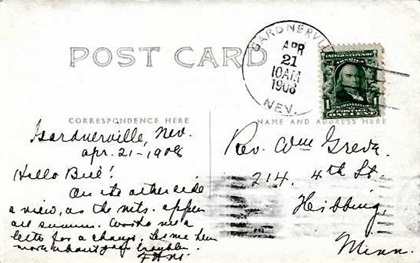 POST CARD
GARDNERVILLE
APR
21
10AM
1908
NEV.
CORRESPONDENCE HERE
NAME AND ADDRESS HERE
Gardnerville, Nev.
Apr. 21-1908
Hello Bill!
On the other side
a view, as the mts. appear
all summer. Write me a
letter for a change, let me hear
more about
Rev. Wm Greva
214. 4th St.
Hibbing,
Minn.